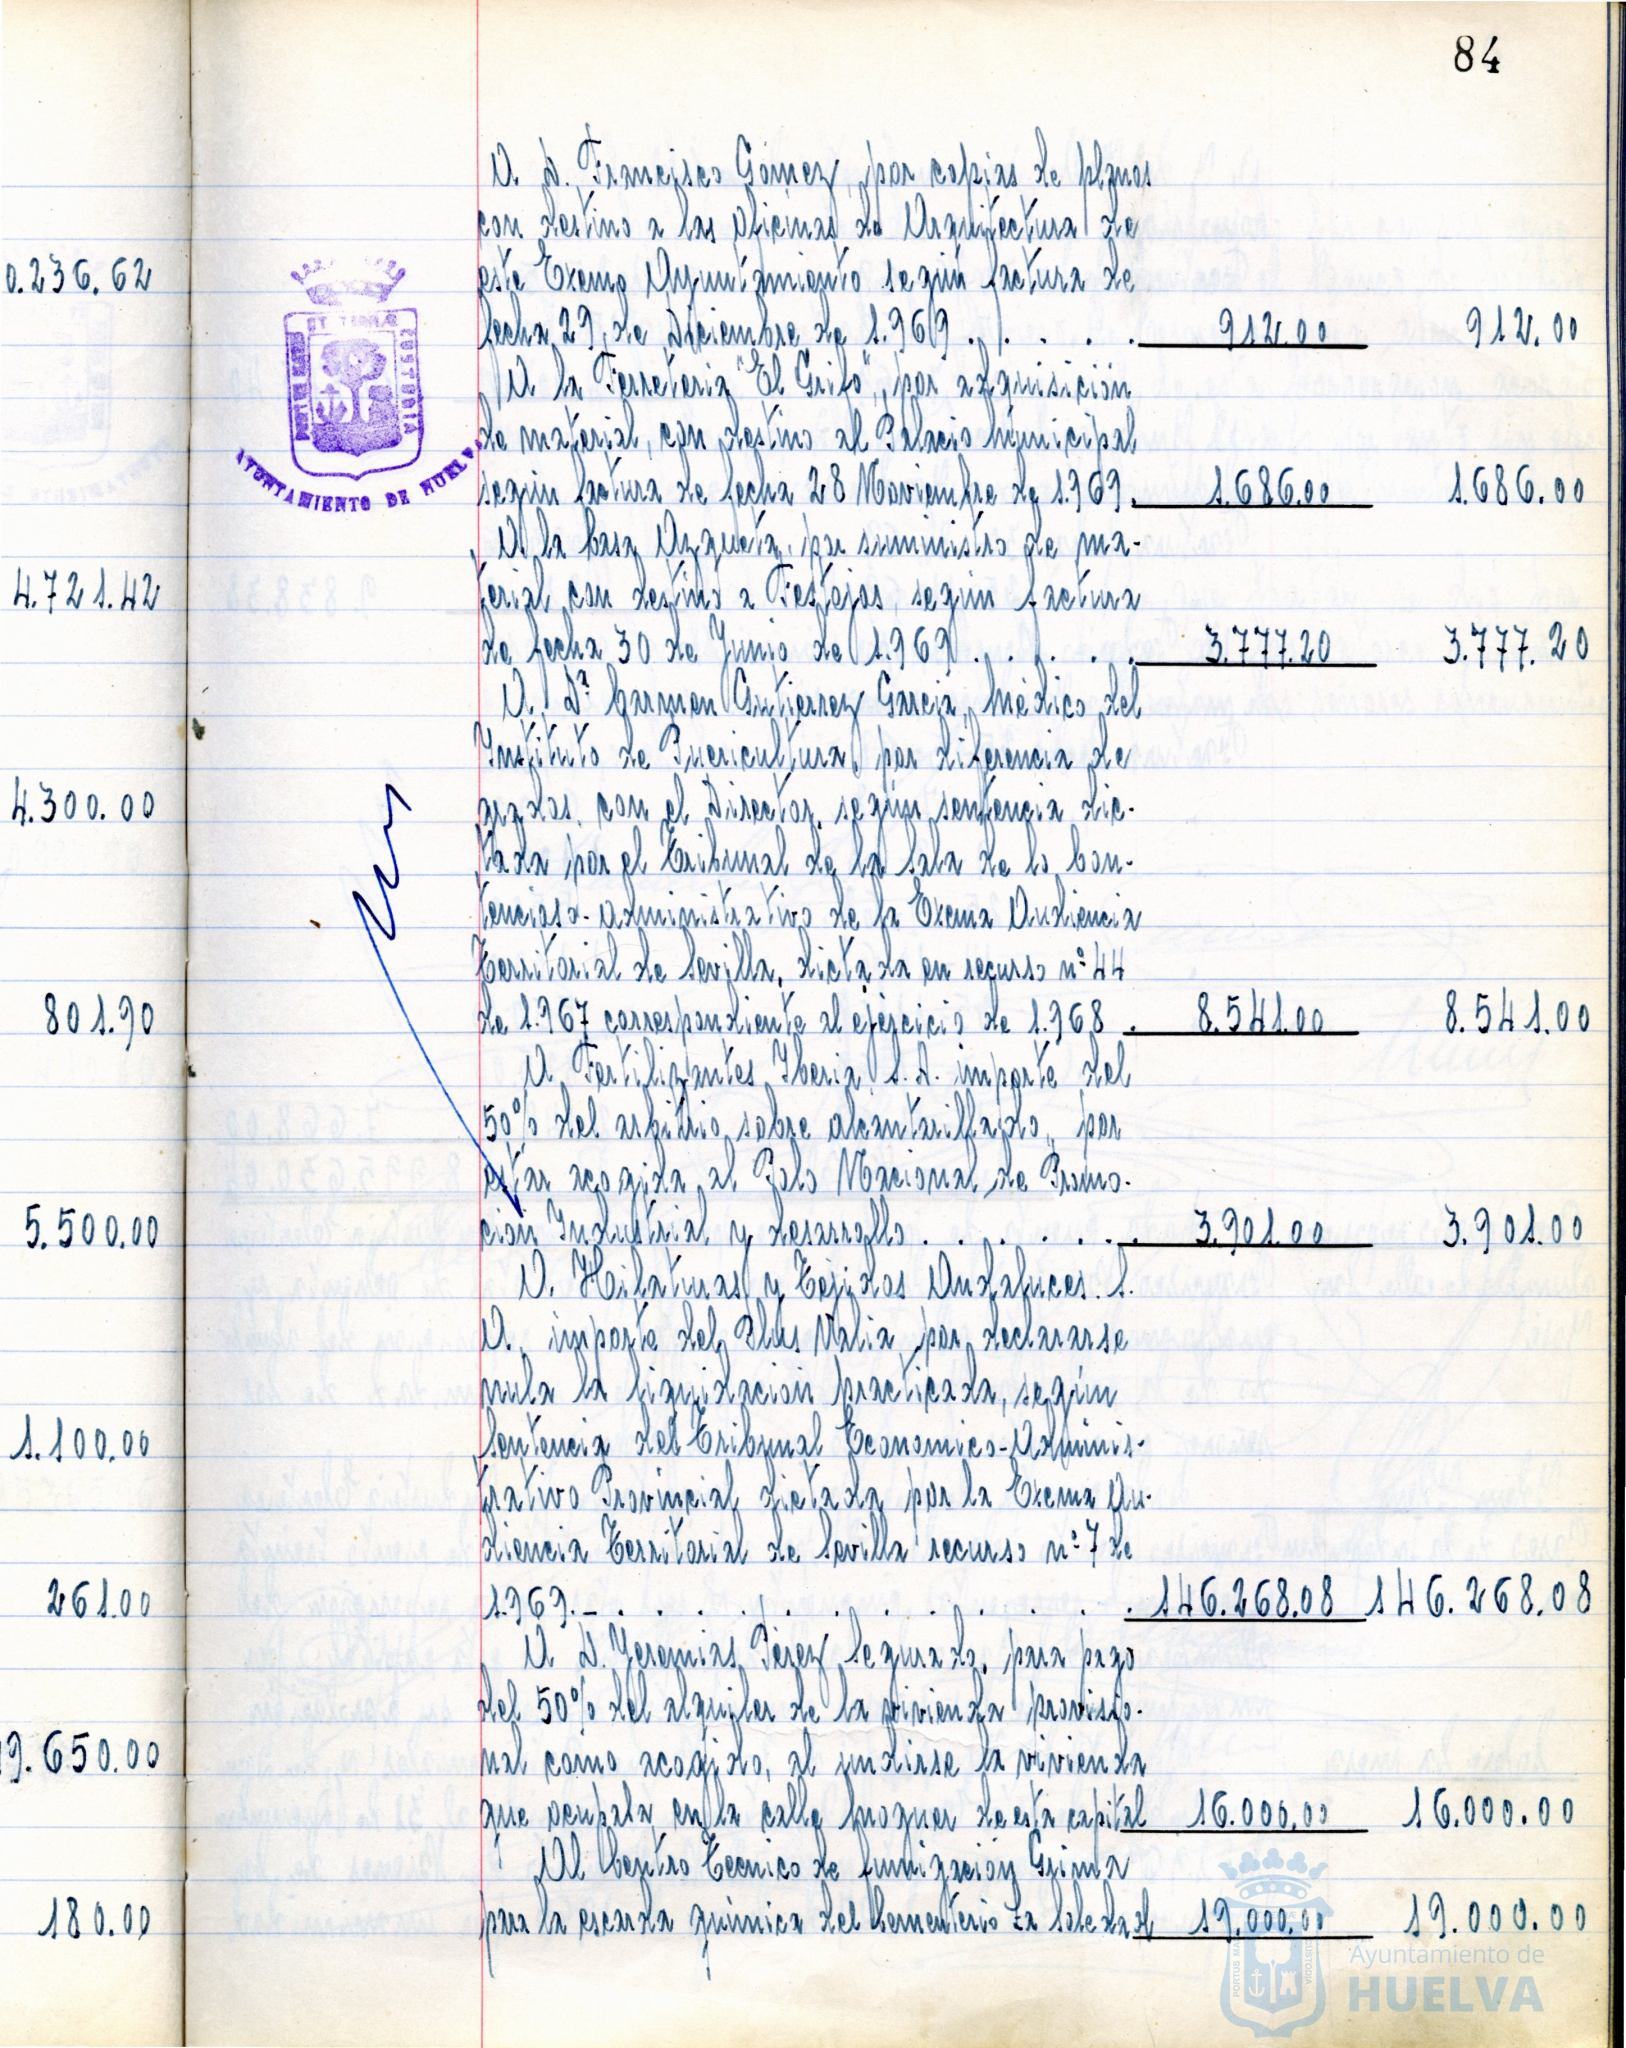 84
A D. Francisco Gómez, por copias de planos
con destino a las oficinas de Arquitectura de
este Excmo Ayuntamiento según factura de
fecha 29, de Diciembre de 1.969 . . . . . 912.00 912.00
A la Ferretería "El Grifo", por adquisición
de material, con destino al Palacio Municipal
según factura de fecha 28 Noviembre de 1.969. 1.686.00 1.686.00
A la Casa Azqueta, por suministro de ma-
terial con destino a Festejos, según factura
de fecha 30 de Junio de 1.969 . . . . . 3.777.20 3.777.20
A Dª Carmen Gutierrez Garcia, Médico del
Instituto de Puericultura, por diferencia de
grados, con el Director, según sentencia dic-
tada por el Tribunal de la Sala de lo Con-
tencioso-administrativo de la Excma Audiencia
Territorial de Sevilla, dictada en recurso nº 44
de 1.967 correspondiente al ejercicio de 1.968 . 8.541.00 8.541.00
A Fertilizantes Iberia, S.A. importe del
50% del arbitrio sobre alcantarillado, por
estar acogida al Polo Nacional de Promo-
ción Industrial y desarrollo . . . . . . 3.901.00 3.901.00
A. Hilaturas y Tejidos Andaluces. S.
A. importe del Plus Valia, por declararse
nula la liquidación practicada, según
Sentencia del Tribunal Economico-Adminis-
trativo Provincial, dictada por la Excma Au-
diencia Territorial de Sevilla recurso nº 7 de
1.969.- . . . . . . . . . . . . 146.268.08 146.268.08
A D. Jeremias Pérez Segurado, para pago
del 50% del alquiler de la vivienda provisio-
nal como acogido, al undirse la vivienda
que ocupaba en la calle Moguer de esta capital 16.000.00 16.000.00
Al Centro Tecnico de Fumigación Grima
para la escarda química del Cementerio La Soledad 19.000.00 19.000.00
0.236.62
4.721.42
4.300.00
801.90
5.500.00
1.100.00
261.00
9.650.00
180.00
PORTUS MARIS
ET TERRAE
CUSTODIA
AYUNTAMIENTO DE HUELVA
Ayuntamiento de
HUELVA